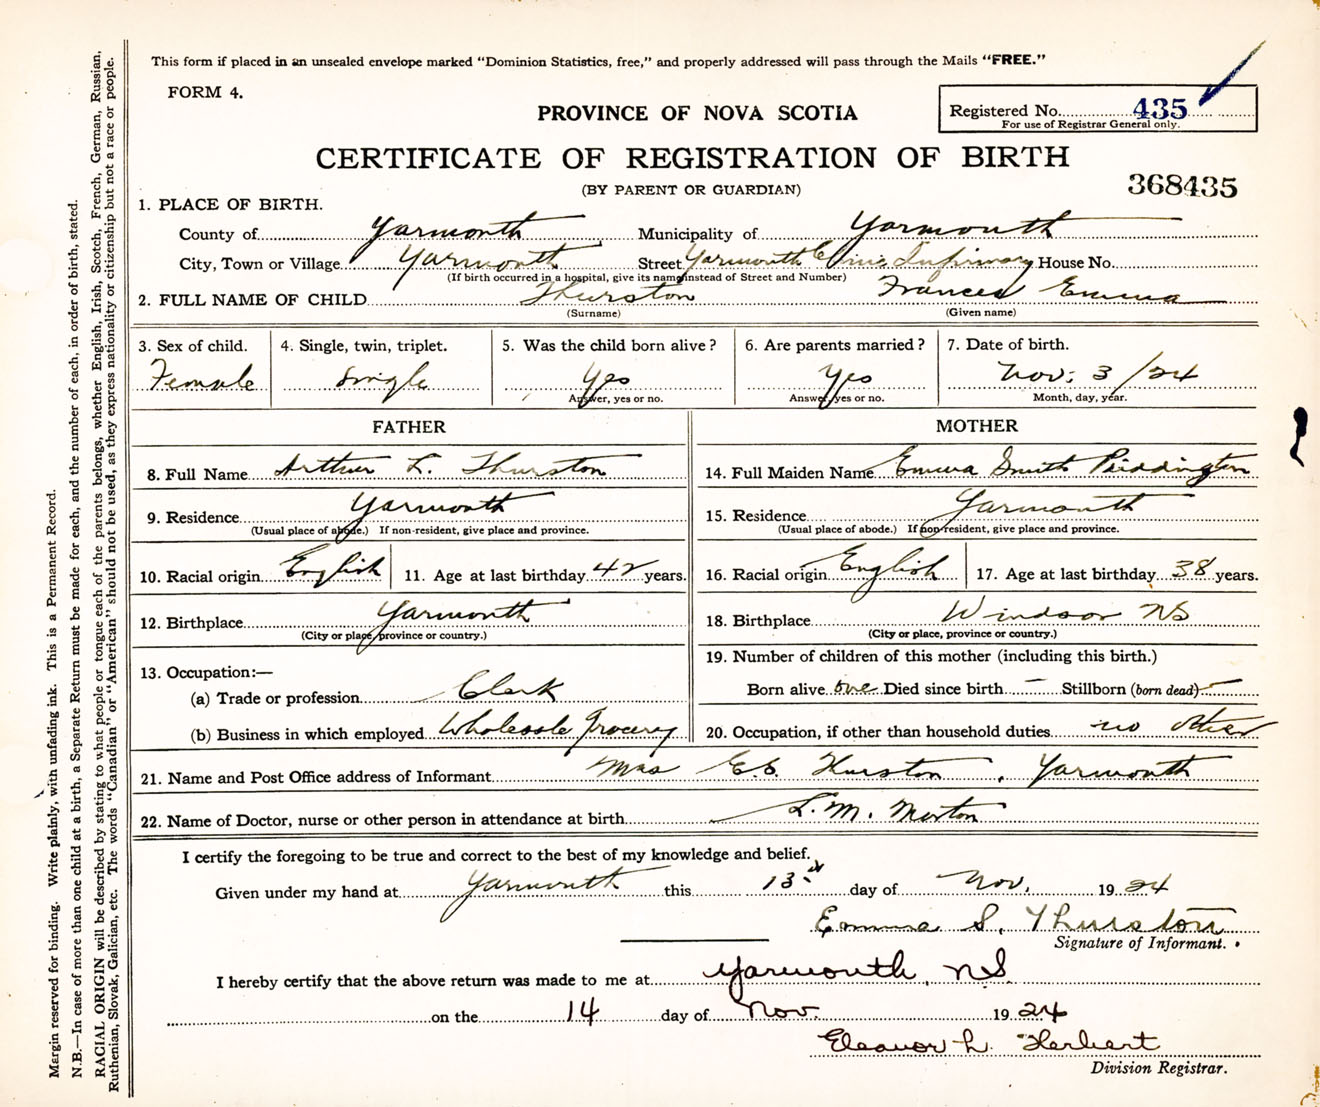 This form if placed in an unsealed envelope marked "Dominion Statistics, free," and properly addressed will pass through the Mails "FREE."
FORM 4.
PROVINCE OF NOVA SCOTIA
Registered No. 435
For use of Registrar General only.
CERTIFICATE OF REGISTRATION OF BIRTH
(BY PARENT OR GUARDIAN)
368435
1. PLACE OF BIRTH.
County of Yarmouth Municipality of Yarmouth
City, Town or Village Yarmouth Street Yarmouth Clinic Infirmary House No.
(If birth occurred in a hospital, give its name instead of Street and Number)
2. FULL NAME OF CHILD Thurston Frances Emma
(Surname) (Given name)
3. Sex of child. 4. Single, twin, triplet. 5. Was the child born alive? 6. Are parents married? 7. Date of birth.
Female Single Yes Yes Nov: 3 /24
Answer, yes or no. Answer, yes or no. Month, day, year.
FATHER MOTHER
8. Full Name Arthur L. Thurston 14. Full Maiden Name Emma Smith Piddington
9. Residence Yarmouth 15. Residence Yarmouth
(Usual place of abode.) If non-resident, give place and province. (Usual place of abode.) If non-resident, give place and province.
10. Racial origin English 11. Age at last birthday 42 years. 16. Racial origin English 17. Age at last birthday 38 years.
12. Birthplace Yarmouth 18. Birthplace Windsor NS
(City or place, province or country.) (City or place, province or country.)
13. Occupation:— 19. Number of children of this mother (including this birth.)
(a) Trade or profession Clerk Born alive one Died since birth — Stillborn (born dead) —
(b) Business in which employed Wholesale Grocery 20. Occupation, if other than household duties no other
21. Name and Post Office address of Informant Mrs E.S. Thurston, Yarmouth
22. Name of Doctor, nurse or other person in attendance at birth L. M. Morton
I certify the foregoing to be true and correct to the best of my knowledge and belief.
Given under my hand at Yarmouth this 13th day of Nov. 1924
Emma S. Thurston
Signature of Informant.
I hereby certify that the above return was made to me at Yarmouth, NS
on the 14 day of Nov. 1924
Eleanor L. Herbert
Division Registrar.
Margin reserved for binding. Write plainly, with unfading ink. This is a Permanent Record.
N.B.—In case of more than one child at a birth, a Separate Return must be made for each, and the number of each, in order of birth, stated.
RACIAL ORIGIN will be described by stating to what people or tongue each of the parents belongs, whether English, Irish, Scotch, French, German, Russian,
Ruthenian, Slovak, Galician, etc. The words "Canadian" or "American" should not be used, as they express nationality or citizenship but not a race or people.